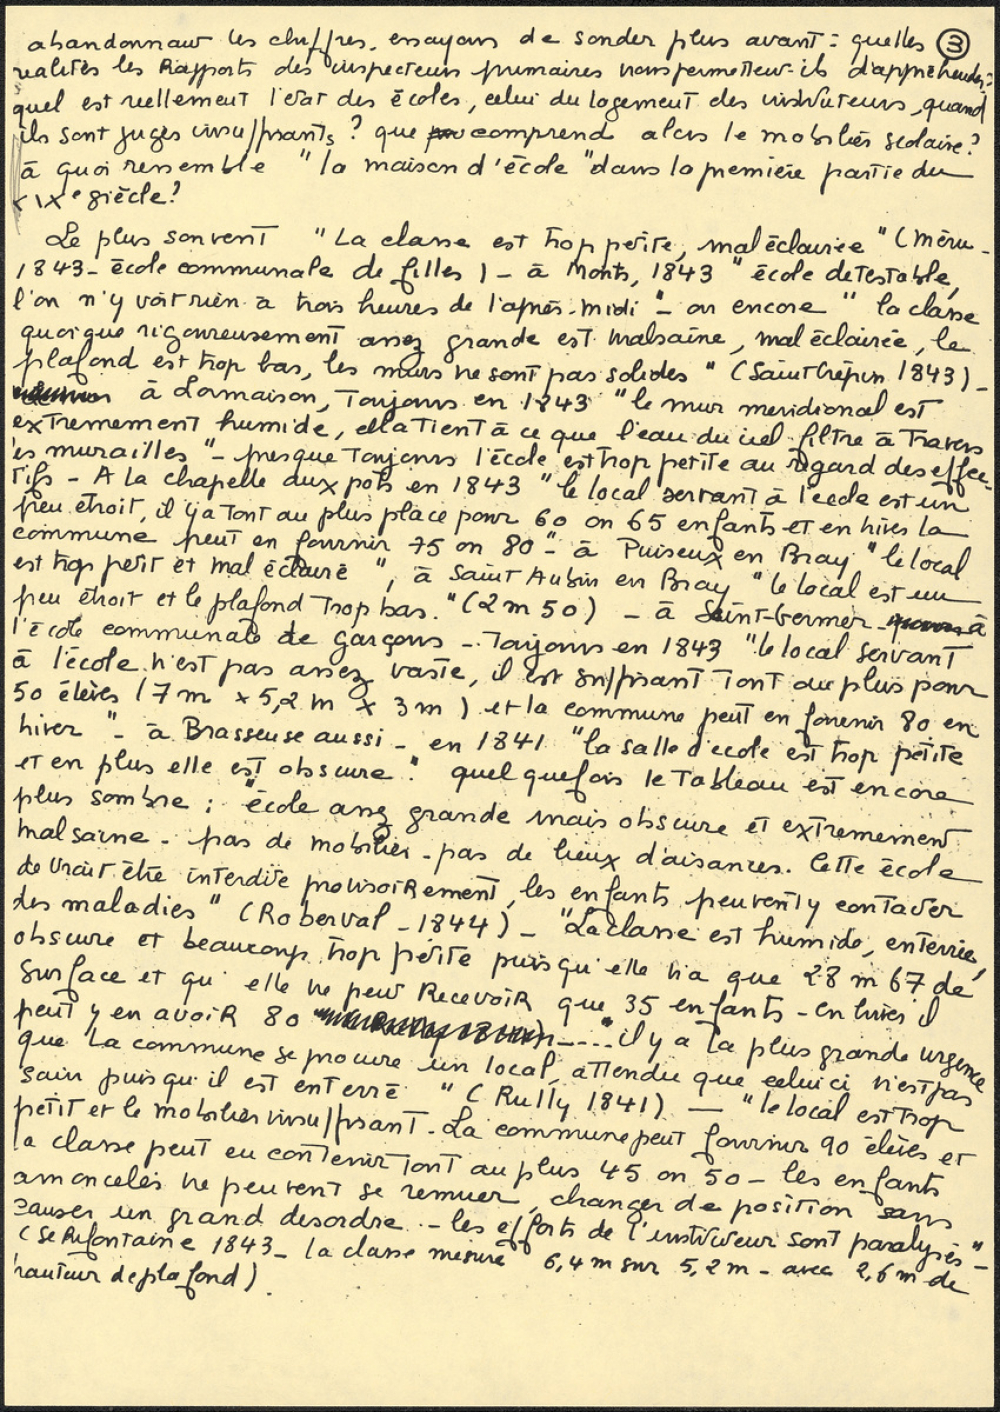 abandonnant les chiffres, essayons de sonder plus avant : quelles ③
réalités les Rapports des inspecteurs primaires nous permettent-ils d'appréhender :
quel est réellement l'état des écoles, celui du logement des instituteurs, quand
ils sont jugés insuffisants ? que comprend alors le mobilier scolaire ?
à quoi ressemble "la maison d'école" dans la première partie du
XIXe siècle ?
Le plus souvent "La classe est trop petite, mal éclairée" (Méru -
1843 - école communale de filles) - à Monts, 1843 "école detestable,
l'on n'y voit rien à trois heures de l'après-midi" - ou encore "la classe
quoique rigoureusement assez grande est malsaine, mal éclairée, le
plafond est trop bas, les murs ne sont pas solides" (Saint Crépin 1843) -
à Lormaison, Toujours en 1843 "le mur meridional est
extremement humide, cela tient à ce que l'eau du ciel filtre à travers
les murailles" - presque Toujours l'école est trop petite au regard des effec-
tifs - A la chapelle aux pots en 1843 "le local servant à l'ecole est un
peu étroit, il y a tout au plus place pour 60 ou 65 enfants et en hiver la
commune peut en fournir 75 ou 80" - à Puiseux en Bray "le local
est trop petit et mal éclairé", à Saint Aubin en Bray "le local est un
peu étroit et le plafond trop bas." (2 m 50) - à Saint-Germer - à
l'école communale de garçons - Toujours en 1843 "le local servant
à l'école n'est pas assez vaste, il est suffisant tout au plus pour
50 élèves (7 m x 5,2 m x 3 m) et la commune peut en fournir 80 en
hiver" - à Brasseuse aussi - en 1841 "la salle d'ecole est trop petite
et en plus elle est obscure". quelquefois le Tableau est encore
plus sombre : "école assez grande mais obscure et extremement
malsaine - pas de mobilier - pas de lieux d'aisances. Cette école
devrait être interdite provisoirement, les enfants peuvent y contacter
des maladies" (Roberval - 1844) - "La classe est humide, enterrée,
obscure et beaucoup trop petite puisqu'elle n'a que 28 m 67 de
surface et qu'elle ne peut Recevoir que 35 enfants - en hiver il
peut y en avoir 80 ..... "il y a la plus grande urgence
que la commune se procure un local, attendu que celui ci n'est pas
sain puisqu'il est enterré" (Rully 1841) — "le local est trop
petit et le mobilier insuffisant. La commune peut fournir 90 élèves et
la classe peut en contenir tout au plus 45 ou 50 - les enfants
amoncelés ne peuvent se remuer, changer de position sans
causer un grand desordre - les efforts de l'instituteur sont paralysés" -
(Sérifontaine 1843 - la classe mesure 6,4 m sur 5,2 m - avec 2,6 m de
hauteur de plafond).